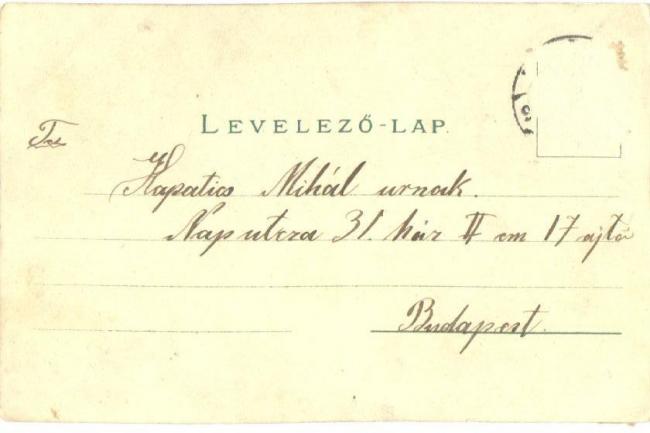 LEVELEZŐ-LAP.
Mihál urnak.
Nap utcza 31. ház II em 17 ajtó
Budapest.